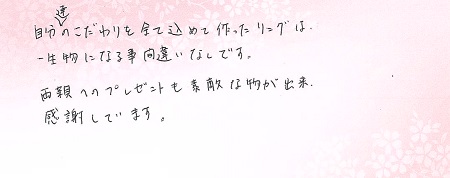 自分達のこだわりを全て込めて作ったリングは、
一生物になる事間違いなしです。
両親へのプレゼントも素敵な物が出来、
感謝しています。